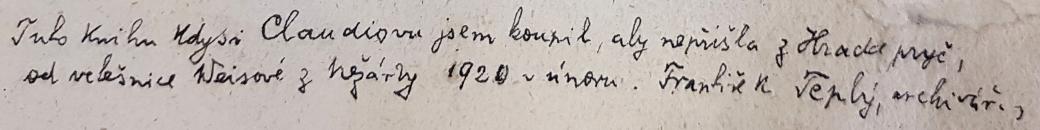 Tuto knihu kdysi Claudiovu jsem koupil, aby nepřišla z Hradce pryč,
od velešnice Weisové z Nežárky 1920 v únoru. František Teplý, archivář.